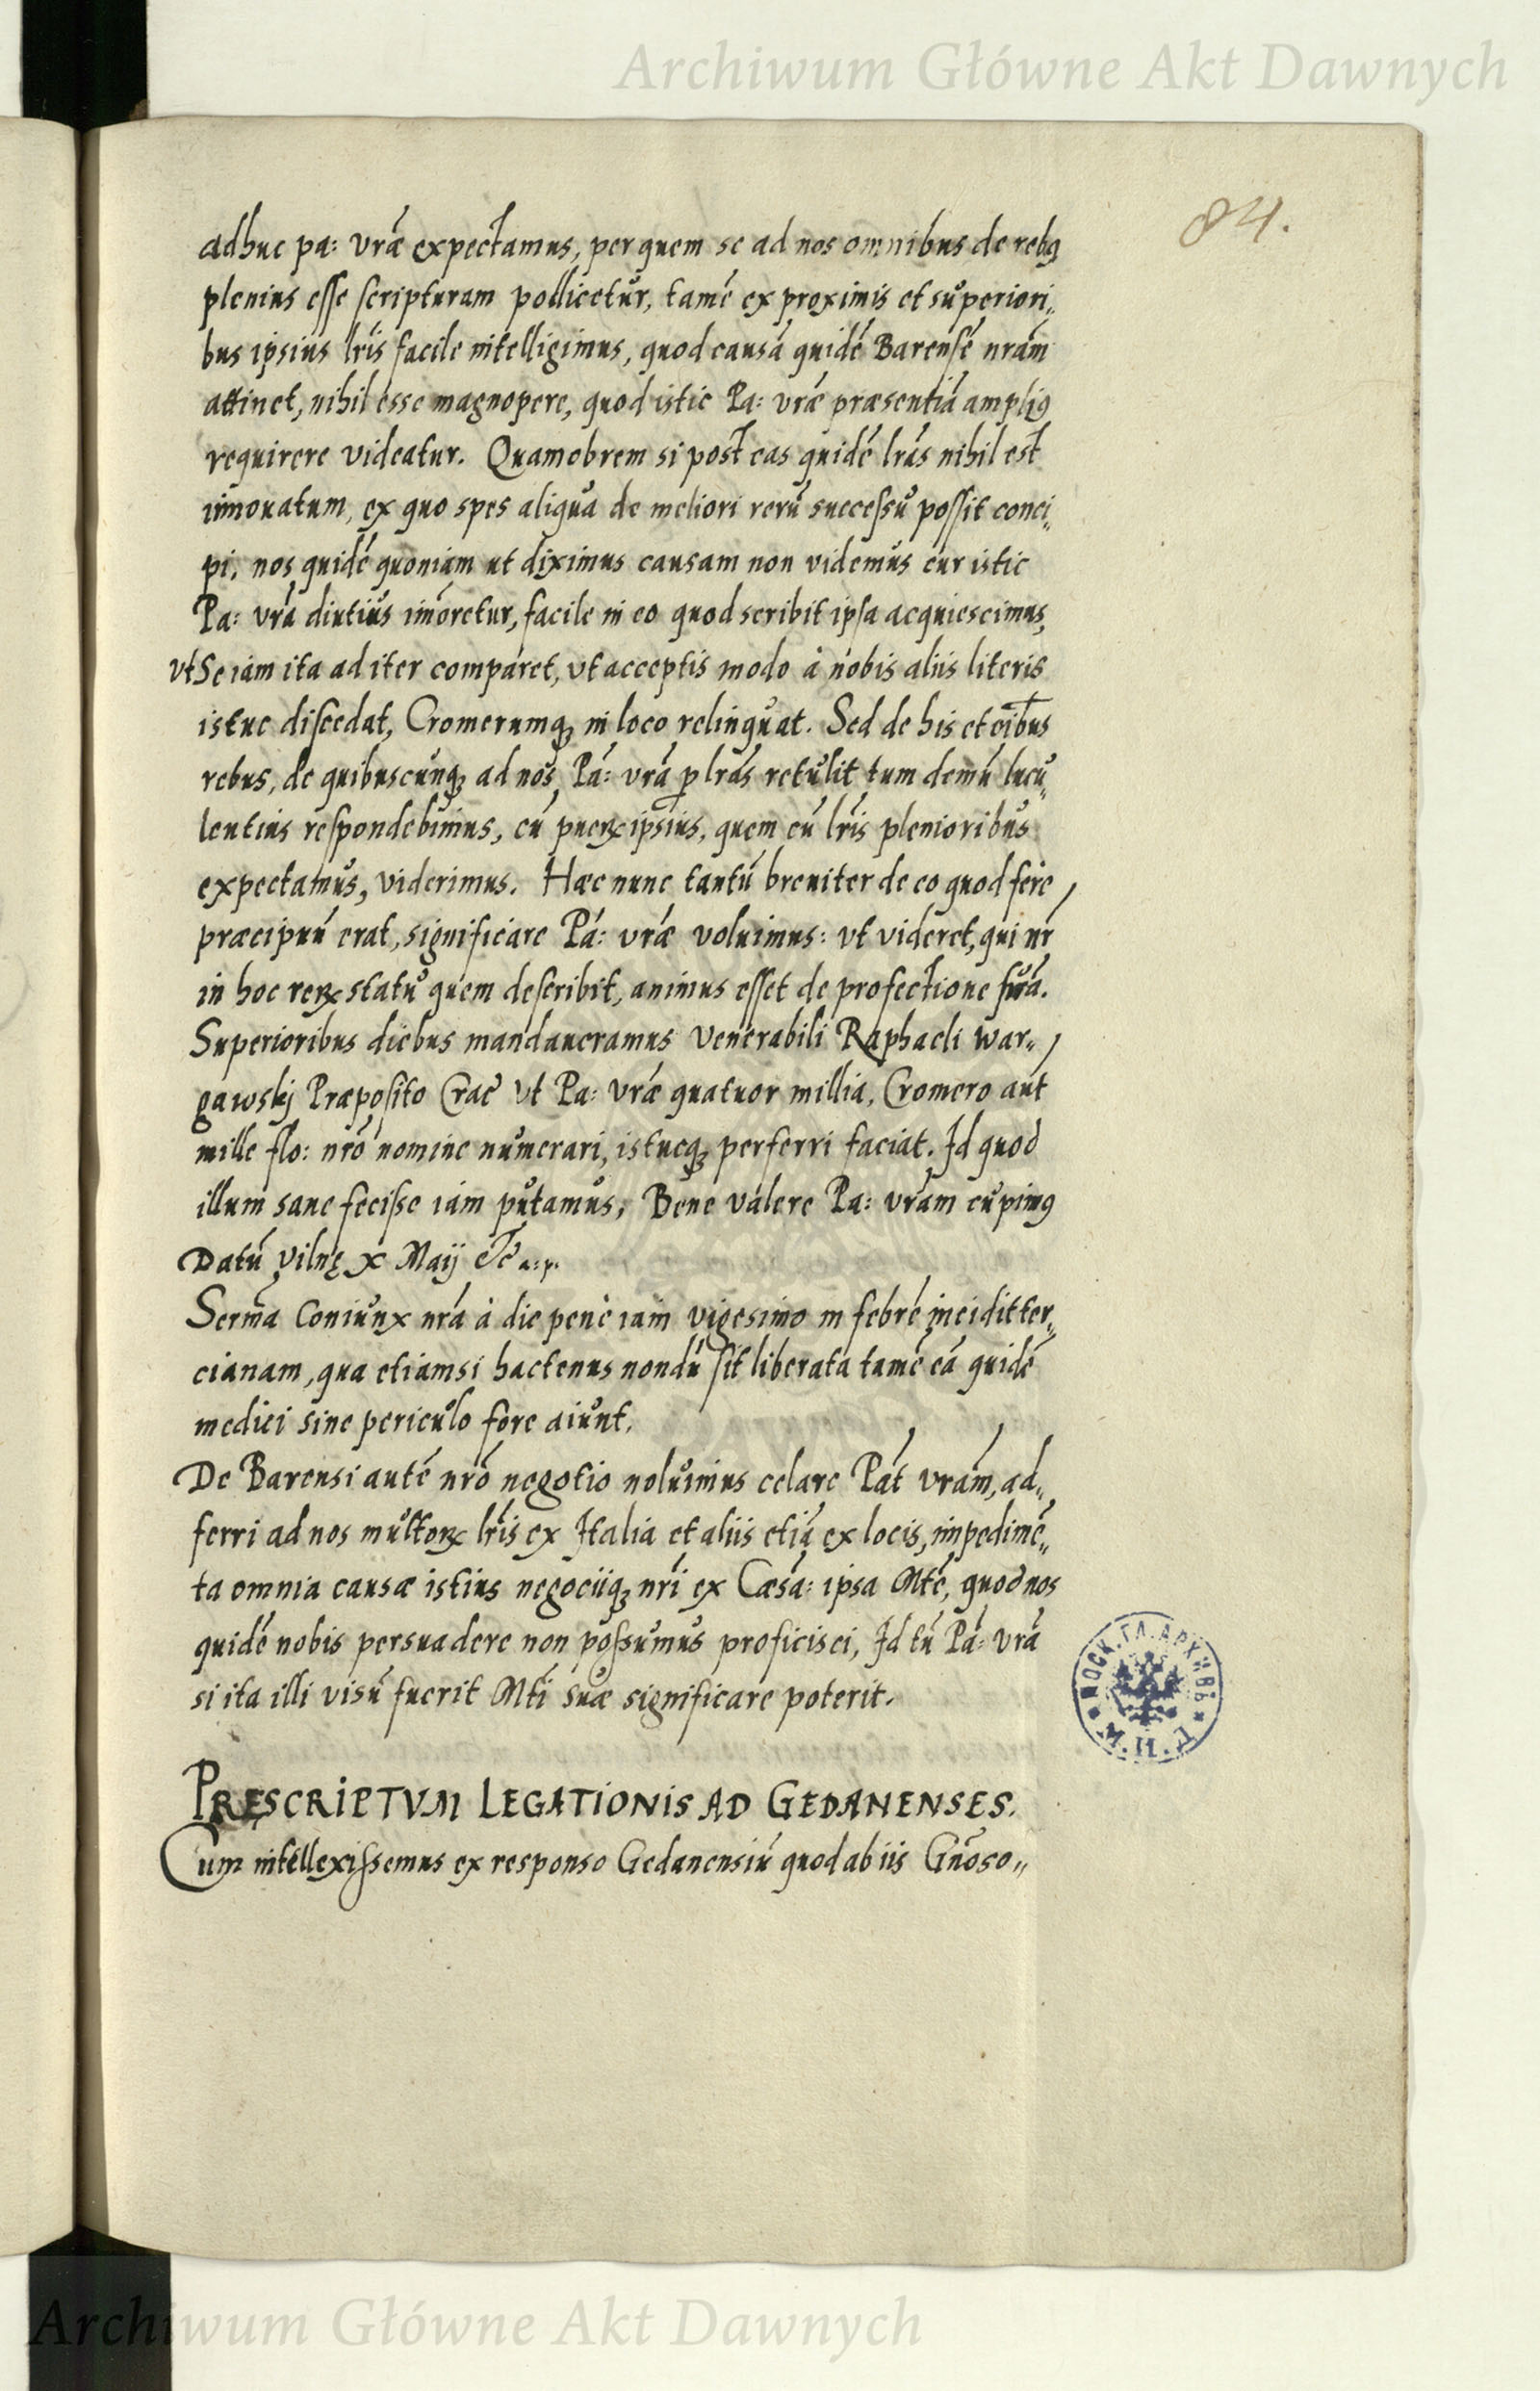 Archiwum Główne Akt Dawnych
84.
adhuc pa: vrã expectamus, per quem se ad nos omnibus de rebꝰ
plenius esse scripturam pollicetur, tamẽ ex proximis et superiori„
bus ipsius lr̃is facile intelligimus, quod causã quidẽ Barensẽ nrãm
attinet, nihil esse magnopere, quod istic Pa: vræ̃ præsentiã ampliꝰ
requirere videatur. Quamobrem si post eas quidẽ lrãs nihil est
innouatum, ex quo spes aliqua de meliori rerũ successu possit conci„
pi, nos quidẽ quoniam ut diximus causam non videmus cur istic
Pa: vrã diutius imoretur, facile in eo quod scribit ipsa acquiescimus,
vt Se iam ita ad iter comparet, vt acceptis modo à nobis aliis literis
istuc discedat, Cromerumqꝫ in loco relinquat. Sed de his et oĩbus
rebus, de quibuscunqꝫ ad nos Pa: vrã ꝑ lrãs retulit tum demũ lucu„
lentius respondebimus, cũ puerꝝ ipsius, quem cũ lr̃is plenioribus
expectamus, viderimus. Hæc nunc tantũ breuiter de eo quod fere
præcipuũ erat, significare Pa: vræ̃ voluimus: vt videret, qui nr̃
in hoc rerꝝ statu quem describit, animus esset de profectione sua.
Superioribus diebus mandaueramus Venerabili Raphaeli War„
gawskj Præposito Crac̃ vt Pa: vræ̃ quatuor millia, Cromero aut
mille flo: nrõ nomine numerari, istucqꝫ perferri faciat. Id quod
illum sane fecisse iam putamus, Bene valere Pa: vrãm cupimꝰ
Datũ Vilnę X Maij etc̃ a: p.
Serm̃a Coniunx nrã à die penè iam vigesimo in febrẽ incidit ter„
cianam, qua etiamsi hactenus nondũ sit liberata tamẽ eã quidẽ
medici sine periculo fore aiunt.
De Barensi autẽ nrõ negotio noluimus celare Pat̃ vrãm, ad„
ferri ad nos multorꝝ lr̃is ex Italia et aliis etiã ex locis, impedimẽ„
ta omnia causæ istius negociiqꝫ nr̃i ex Cæsa: ipsa Mtẽ, quod nos
quidẽ nobis persuadere non possumus proficisci, Id tũ Pa: vrã
si ita illi visũ fuerit Mtĩ suæ significare poterit.
PRESCRIPTVM LEGATIONIS AD GEDANENSES.
Cum intellexissemus ex responso Gedanensiũ quod ab iis Gñoso„
МОСК. ГЛ. АРХИВЪ
М. И. Д.
Archiwum Główne Akt Dawnych